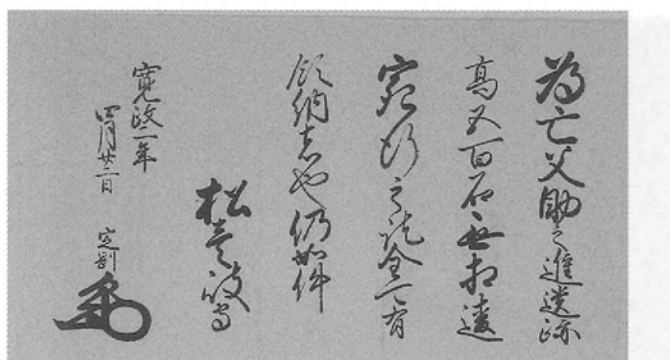 為亡父助之進遺跡
高五百石無相違
宛行之訖全可有
領納者也仍如件
松
寛政二年
四月廿二日 定剛